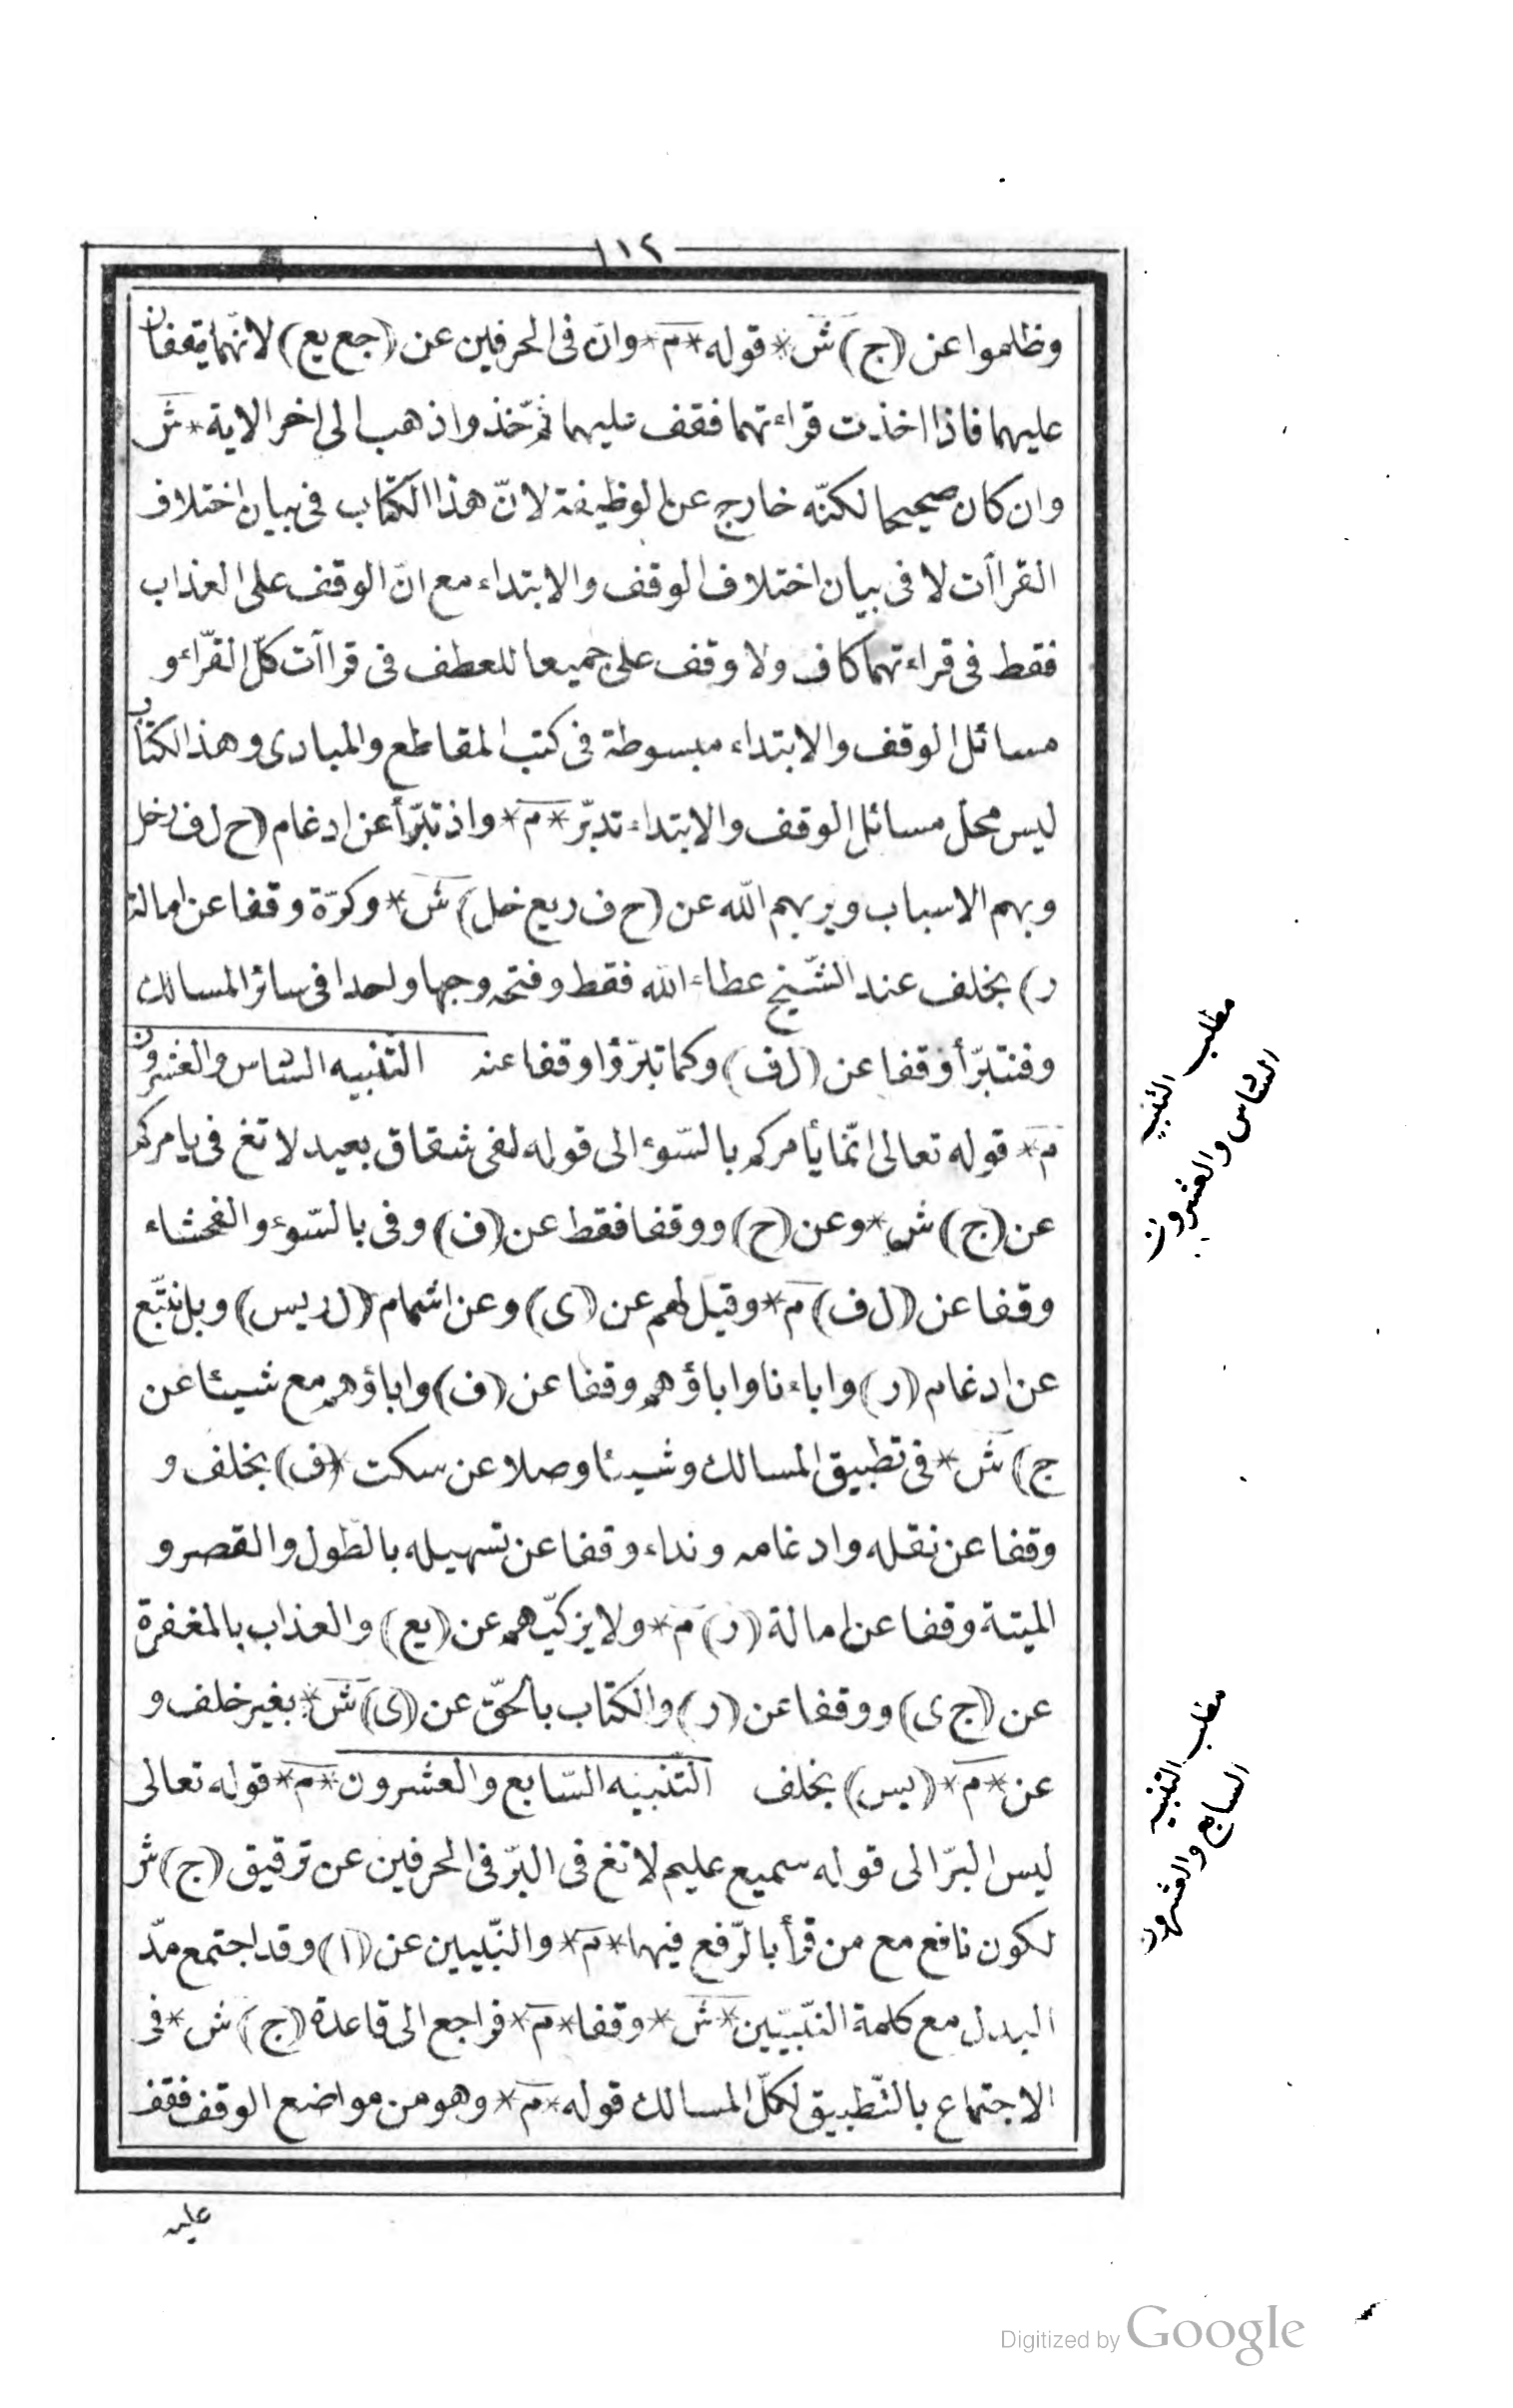 ١١٢
وظلموا عن (ج) ش * قوله * م * وان فى الحرفين عن (جع يع) لانهما يقفان
عليهما فاذا اخذت قراءتهما فقف عليهما ثم خذ واذهب الى اخر الاية * ش
وان كان صحيحا لكنّه خارج عن الوظيفة لانّ هذا الكتاب فى بيان اختلاف
القراآت لا فى بيان اختلاف الوقف والابتداء مع انّ الوقف على العذاب
فقط فى قراءتهما كاف ولا وقف على جميعا للعطف فى قراآت كلّ القرّاء و
مسائل الوقف والابتداء مبسوطة فى كتب المقاطع والمبادى وهذا الكتاب
ليس محل مسائل الوقف والابتداء تدبّر * م * واذ تبرّأ عن ادغام (ح ل ف ر خل
وبهم الاسباب ويريهم اللّه عن (ح ف ر يع خل) ش * وكرّة وقفا عن امالة
ر) بخلف عند الشّيخ عطاء الله فقط وفتحه وجها واحدا فى سائر المسالك
وفنتبرّأ وقفا عن (ل ف) وكما تبرّؤا وقفا عند التنبيه السّادس والعشرون
م * قوله تعالى انّما يأمركم بالسّوء الى قوله لفى شقاق بعيد لا تغ فى يامركم
عن (ج) ش * وعن (ح) ووقفا فقط عن (ف) وفى بالسّوء والفحشاء
وقفا عن (ل ف) م * وقيل لهم عن (ى) وعن اشمام (ل ر يس) وبل نتّبع
عن ادغام (ر) واباءنا واباؤهم وقفا عن (ف) واباؤهم مع شيئا عن
ج) ش * فى تطبيق المسالك وشيئا وصلا عن سكت * (ف) بخلف و
وقفا عن نقله وادغامه ونداء وقفا عن تسهيله بالطّول والقصر و
الميتة وقفا عن امالة (ر) م * ولا يزكّيهم عن (يع) والعذاب بالمغفرة
عن (ج ى) ووقفا عن (ر) والكتاب بالحقّ عن (ى) ش * بغير خلف و
عن * م * (يس) بخلف التّنبيه السّابع والعشرون * م * قوله تعالى
ليس البرّ الى قوله سميع عليم لا تغ فى البرّ فى الحرفين عن ترقيق (ج) ش
لكون نافع مع من قرأ بالرّفع فيهما * م * والنّبيين عن (ا) وقد اجتمع مدّ
البدل مع كلمة النّبييّن * ش * وقفا * م * فراجع الى قاعدة (ج) ش * فى
الاجتماع بالتّطبيق لكلّ المسالك قوله * م * وهو من مواضع الوقف فقف
عليه
مطلب التنبيه
السّادس والعشرون
مطلب التنبيه
السابع والعشرون
Digitized by Google